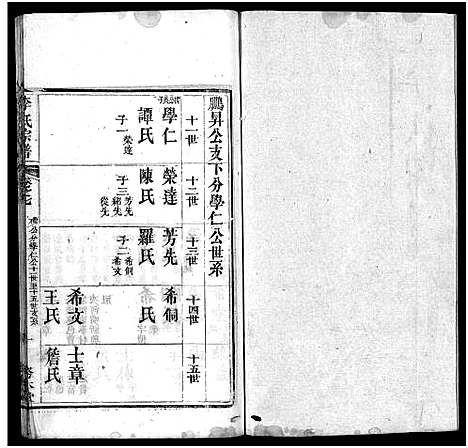 鵬昇公支下分學仁公世系
十一世
十二世
十三世
十四世
十五世
學仁
譚氏
子一榮達
榮達
陳氏
子三芳先
緒先
從先
芳先
羅氏
子二希侗
希文
希侗
氏
希文
王氏
士章
詹氏
氏宗譜
卷七
公分學仁公十一世至十五世支系